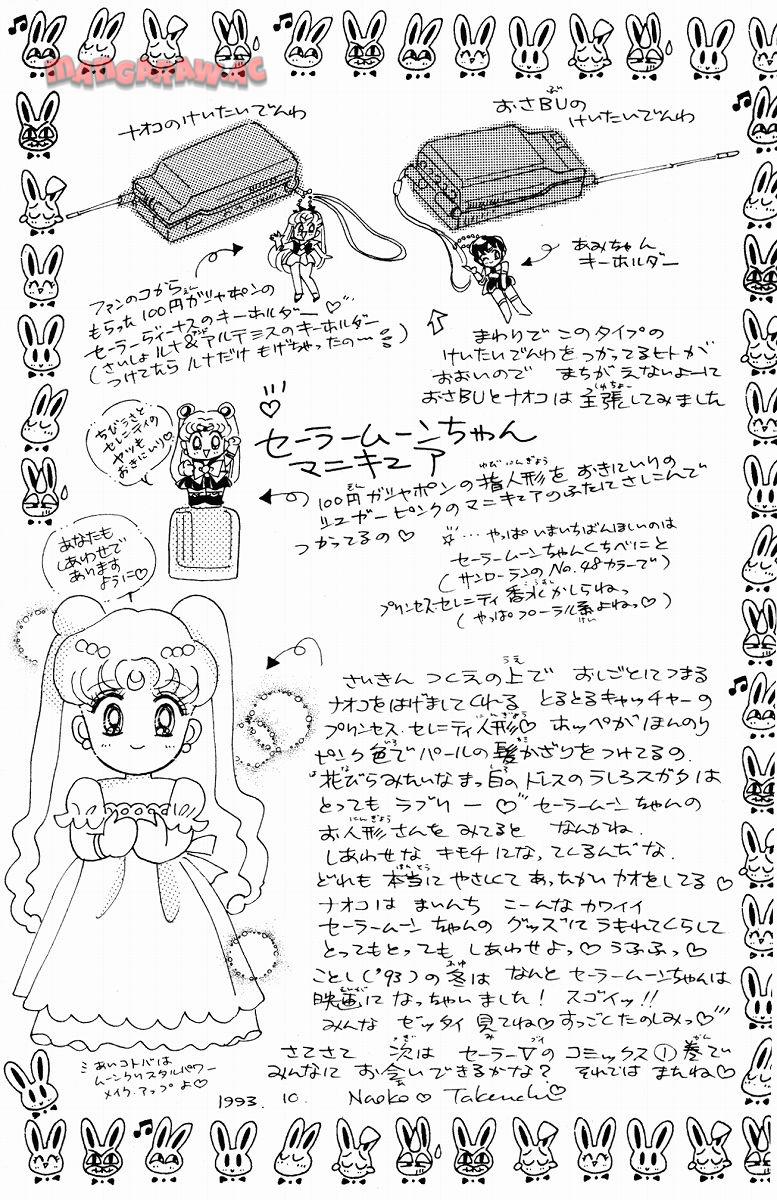 MANGARAW.AC
ナオコのけいたいでんわ
おさBUの
けいたいでんわ
あみちゃん
キーホルダー
ファンのコから
もらった100円ガシャポンの
セーラーヴィーナスのキーホルダー♡
(さいしょルナ&アルテミスのキーホルダー
つけてたら ルナだけ もげちゃったの〜)
まわりで このタイプの
けいたいでんわを つかってるヒトが
おおいので まちがえないよーに
おさBUとナオコは主張してみました
ちびうさと
セレニティの
ヤツも
おきにいり♡
セーラームーンちゃん
マニキュア
100円ガシャポンの指人形を おきにいりの
シュガーピンクのマニキュアのふたにさしこんで
つかってるの♡
☆…やっぱ いまいちばんほしいのは
セーラームーンちゃんくちべにと
(サンローランのNo.48カラーで)
プリンセス・セレニティ香水かしらねっ
(やっぱフローラル系よねっ♡)
あなたも
しあわせで
あります
ように♡
さいきん つくえの上で おしごとにつまる
ナオコをはげましてくれる とるとるキャッチャーの
プリンセス・セレニティ人形♡ ホッペがほんのり
ピンク色でパールの髪かざりをつけてるの.
花びらみたいなまっ白のドレスのうしろスガタは
とってもラブリー♡ セーラームーンちゃんの
お人形さんを みてると なんかね.
しあわせな キモチになってくるんだな.
どれも 本当に やさしくて あったかい カオをしてる♡
ナオコは まいんち こーんな カワイイ
セーラームーンちゃんの グッズに うもれてくらして
とってもとっても しあわせよっ♡ うふふっ♡
ことし('93)の冬は なんと セーラームーンちゃんは
映画に なっちゃいました! スゴイッ!!
みんな ゼッタイ 見てね♡ すっごくたのしみっ♡
さてさて 次は セーラーVの コミックス①巻で
みんなに お会いできるかな? それでは またね♡
あいコトバは
ムーンクリスタルパワー
メイク・アップよ♡
1993. 10. Naoko♡Takeuchi♡